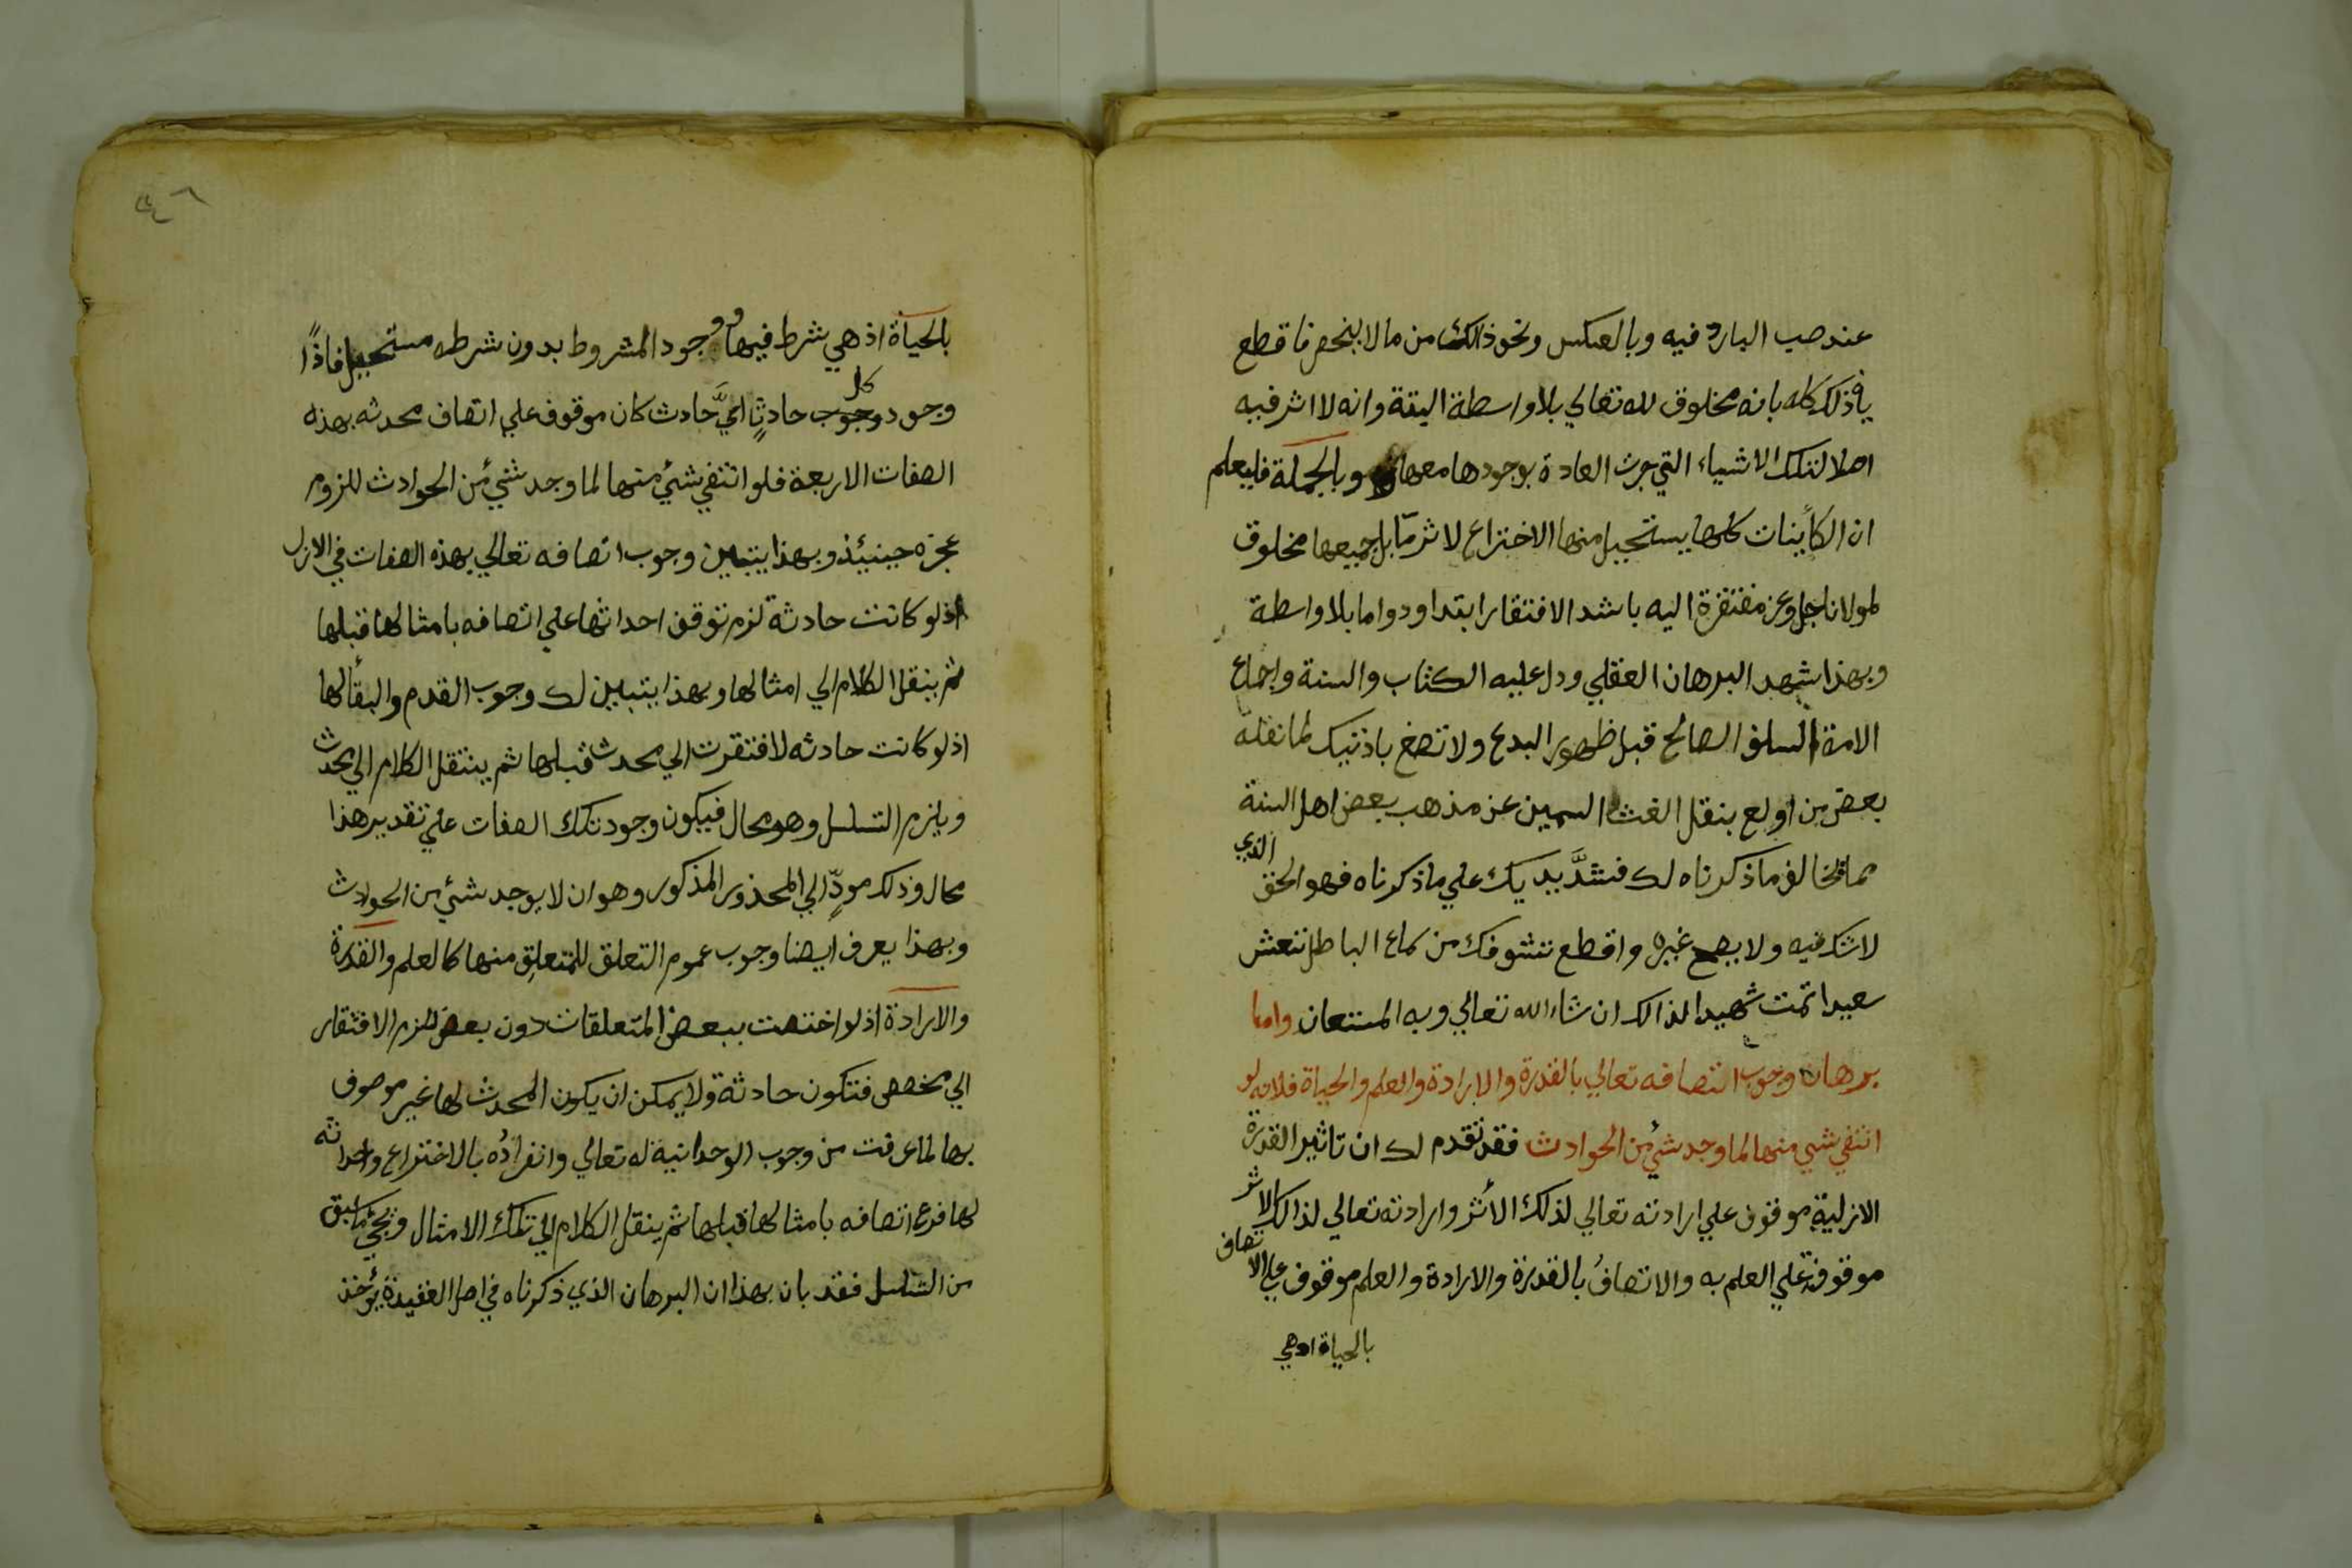 عند صب البارد فيه وبالعكس ونحو ذالك من ما لا ينحصر فاقطع
في ذلك كله بانه مخلوق لله تعالي بلا واسطة البتة وانه لا اثر فيه
اصلا لتلك الاشياء التي جرت العادة بوجودها معها وبالجملة فليعلم
ان الكاينات كلها يستحيل منها الاختراع لاثر مّا بل جميعها مخلوق
لمولانا جل وعز مفتقرة اليه باشد الافتقار ابتدا ودواما بلا واسطة
وبهذا شهد البرهان العقلي ودل عليه الكتاب والسنة واجماع
الامة السلف الصالح قبل ظهور البدع ولا تصغ باذنيك لما نقله
بعض من اولع بنقل الغث السمين عن مذهب بعض اهل السنة
مما يخالف ما ذكرناه لك فشدَّ يديك علي ما ذكرناه فهو الحق الذي
لا شك فيه ولا يصح غيره واقطع تشوفك من سماع الباطل تعش
سعيدا تمت شهيدا لذالك ان شاء الله تعالي وبه المستعان واما
برهان وجوب اتصافه تعالي بالقدرة والارادة والعلم والحياة فلانه لو
انتفي شي منها لما وجد شئ من الحوادث فقد تقدم لك ان تاثير القدرة
الازلية موقوف علي ارادته تعالي لذلك الأثر وارادته تعالي لذالك الاثر
موقوفة علي العلم به والاتصافُ بالقدرة والارادة والعلم موقوف علي الاتصاف
بالحياة اذ هي
٤٦
بالحياة اذ هي شرط فيها ووجود المشروط بدون شرطه مستحيل فاذًا
وجود وجوب كل حادثٍ ايَّ حادث كان موقوف علي اتصاف محدثه بهذه
الصفات الاربعة فلو انتفي شئ منها لما وجد شئ من الحوادث للزوم
عجزه حينيئذ وبهذا يتبين وجوب اتصافه تعالي بهذه الصفات في الازل
اذ لو كانت حادثة لزم توقف احداثها علي اتصافه بامثالها قبلها
ثم ينقل الكلام الي امثالها وبهذا يتبين لك وجوب القدم والبقا لها
اذ لو كانت حادثه لافتقرت الي محدث قبلها ثم ينتقل الكلام الي محدث
ويلزم التسلسل وهو محال فيكون وجود تلك الصفات علي تقدير هذا
محال وذلك مودٍّ الي المحذور المذكور وهو ان لا يوجد شئ من الحوادث
وبهذا يعرف ايضا وجوب عموم التعلق للمتعلق منها كالعلم والقدرة
والارادة اذ لو اختصت ببعض المتعلقات دون بعض للزم الافتقار
الي مخصص فتكون حادثة ولا يمكن ان يكون المحدث لها غير موصوف
بها لما عرفت من وجوب الوحدانية له تعالي وانفرادُه بالاختراع واحداثه
لها فرع اتصافه بامثالها قبلها ثم ينقل الكلام الي تلك الامثال ويجئ ما سبق
من التسلسل فقد بان بهذا ان البرهان الذي ذكرناه في اصل العقيدة يؤخذ